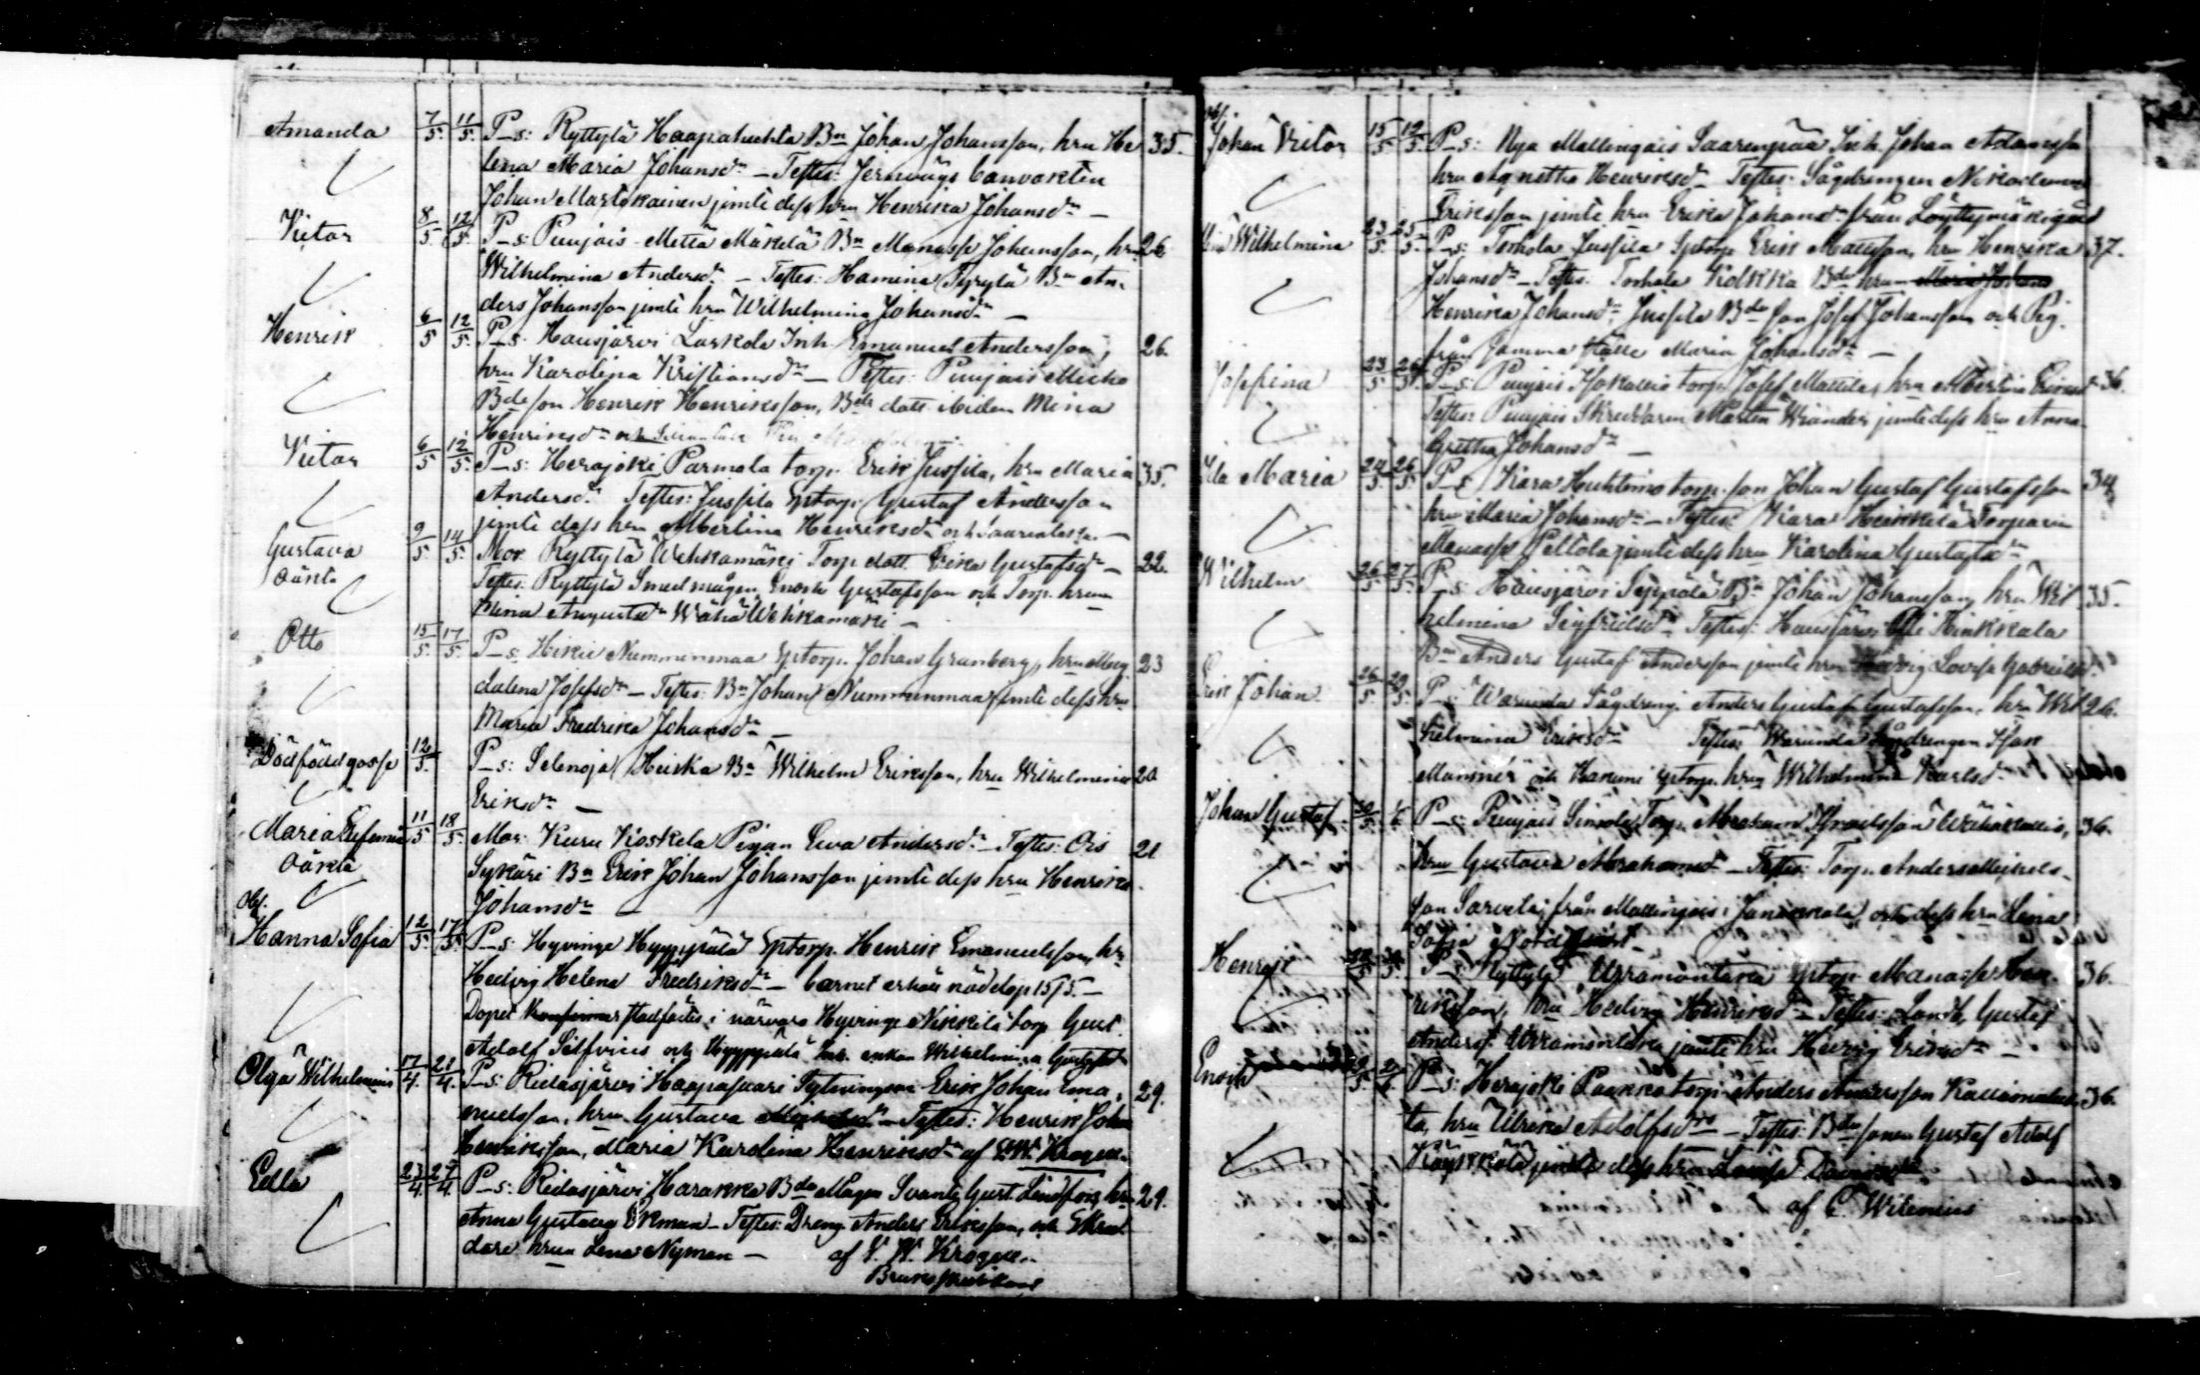 Amanda 7/5 11/5 P_s: Ryttylä Haapahuhta Bn Johan Johansson, hru He 35.
lena Maria Johansdr – Testes: Jernvägs banvakten
Johan Martikainen jemte dess hru Henrika Johansdr –
Victor 8/5 12/5 P_s: Punjais Mettä Mäkelä Bn Manasse Johansson, hru 26
Wilhelmina Andersdr – Testes: Hamina Tyrylä Bn An-
ders Johansson jemte hru Wilhelmina Johansdr –
Henrik 6/5 12/5 P_s: Hausjärvi Inh. Emanuel Andersson, 26.
hru Karolina Kristiansdr – Testes: Punjais Micko
Bde son Henrik Henriksson, Bde dott. ibidem Mina
Henriksdr och
Victor 6/5 12/5 P_s: Herajoki Parmala torp. Erik Jussila, hru Maria 35.
Andersdr Testes: Jussila Sptorp. Gustaf Andersson
jemte dess hru Albertina Henriksdr och
Gustava 9/5 14/5 Mor. Ryttylä Wehkamäki Torp. dott. Erika Gustafsdr – 22.
oäkta Testes: Ryttylä Smedmågen Enok Gustafsson och Torp. hrun
Mina Augustsdr Wähä Wehkamäki –
Otto 15/5 17/5 P_s: Hikiä Nummenmaa Sptorp. Johan Granberg, hru Mag 23
dalena Josefsdr – Testes: Bn Johan Nummenmaa jemte dess hru
Maria Fredrika Johansdr –
Dödfödd gosse 12/5 P_s: Selenoja Heiska Bn Wilhelm Eriksson, hru Wilhelmina 20
Eriksdr –
Maria Eufemia 11/5 18/5 Mor: Kuru Koskela Pigan Eva Andersdr – Testes: Ois 21
oäkta Sykäri Bn Erik Johan Johansson jemte dess hru Henrika
Johansdr –
Obs.
Hanna Sofia 12/5 17/5 P_s: Hyvinge Hyyppärä Sptorp. Henrik Emanuelsson, hru
Hedvig Helena Fredriksdr – barnet erhöll nöddop 15/5. –
Dopet stadfästes i närvaro Hyvinge Nikkilä torp. Gust.
Adolf Silfvius och Hyyppärä Inh. enkan Wilhelmina Gustafsdr
Olga Wilhelmina 17/4 21/4 P_s: Ridasjärvi Haapasaari Erik Johan Ema- 29.
nuelsson, hru Gustava – Testes: Henrik Johan
Henriksson, Maria Karolina Henriksdr af V. W. Krogell.
Edla 23/4 27/4 P_s: Ridasjärvi Harakka Bde Mågen Svante Gust. Lindfors, hru 29.
Anna Gustava Ekman – Testes: Dreng. Anders Eriksson, och Skräd
dare hrun Lena Nyman – af V. W. Krogell.
Brukspredikant
Obs.
Johan Victor 15/5 19/5 P_s: Nya Mallingais Saarenpää Inh. Johan Adamsson
hru Agnetha Henriksdr – Testes: Sågdrengen Nikodemus
Eriksson jemte hru Erika Johansdr från Löyttymäki gård
Wilhelmina 23/5 25/5 P_s: Torhola Jussila Sptorp. Erik Mattsson, hru Henrika 37.
Johansdr – Testes: Torhola Kolkka Bde hrun
Henrika Johansdr, Jussila Bde son Josef Johansson och Pig.
från samma ställe Maria Johansdr –
Josefina 23/5 26/5 P_s: Punjais Isokallio torp. Josef Mattila, hru Albertina 36.
Testes: Punjais Skreddaren Mårten Wiander jemte dess hru Anna
Gretha Johansdr –
Ida Maria 24/5 26/5 P_s: Kara Huhtimo torp. son Johan Gustaf Gustafsson 34
hru Maria Johansdr – Testes: Kara Heikkilä Torparen
Manasse Peltola jemte dess hru Karolina Gustafsdr
Wilhelm 26/5 27/5 P_s: Hausjärvi Seppälä Bn Johan Johansson, hru Wil 35.
helmina Sigfridsdr – Testes: Hausjärvi Olli Hinkkala
Bn Anders Gustaf Andersson jemte hru Hedvig Lovisa Gabrielsdr.
Erik Johan 26/5 29/5 P_s: Warunda Sågdreng. Anders Gustaf Gustafsson, hru Wil 26.
helmina Eriksdr Testes: Warunda Sågdrengen Isak
Manner och Karumi Sptorp. hru Wilhelmina Karlsdr
Johan Gustaf P_s: Punjais Simola Torp. Abraham Israelsson Wähäkallio, 36.
hru Gustava Abrahamsdr – Testes: Torp. Anders Mickels-
son Sarvela, från Mallinjais i Janakkala, och dess hru Lena
Sofia Nordqvist –
Henrik P_s: Ryttylä Urramontana Sptorp. Manasse Hen- 36.
riksson, hru Hedvig Henriksdr – Testes: Landb. Gustaf
Anderss. jemte hru Hedvig Eriksdr –
Enok P_s: Herajoki Paavko torp. Anders Andersson 36.
ta, hru Ulrika Adolfsdr – Testes: Bde sonen Gustaf Adolf
jemte dess hru Lovisa
af C. Wilenius